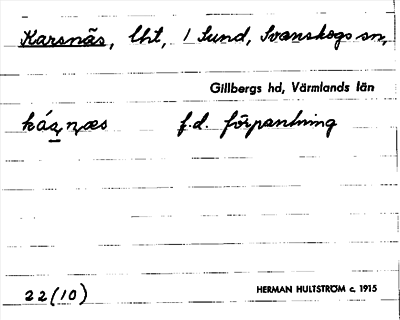 Karsnäs, lht, 1 Sund, Svanskogs sn,
Gillbergs hd, Värmlands län
f.d. förpantning
22(10)
HERMAN HULTSTRÖM c. 1915